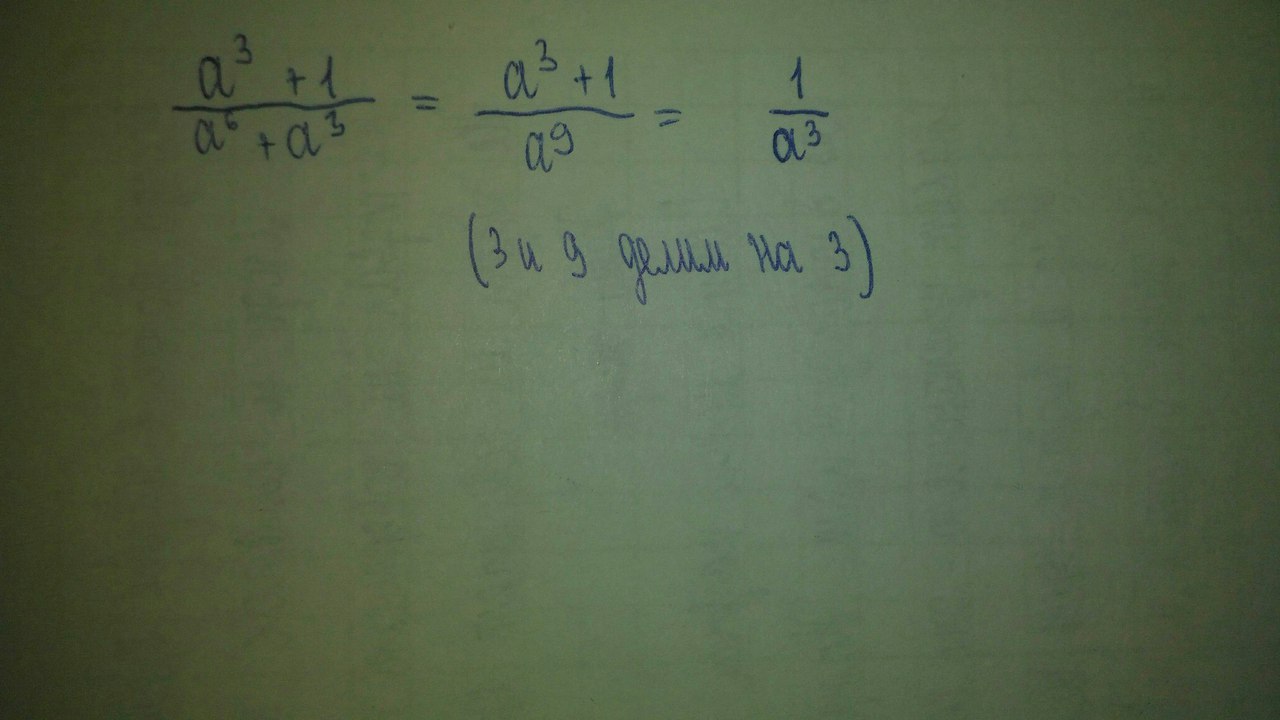 a³ + 1 / a⁶ + a³ = a³ + 1 / a⁹ = 1 / a³
(3 и 9 делим на 3)